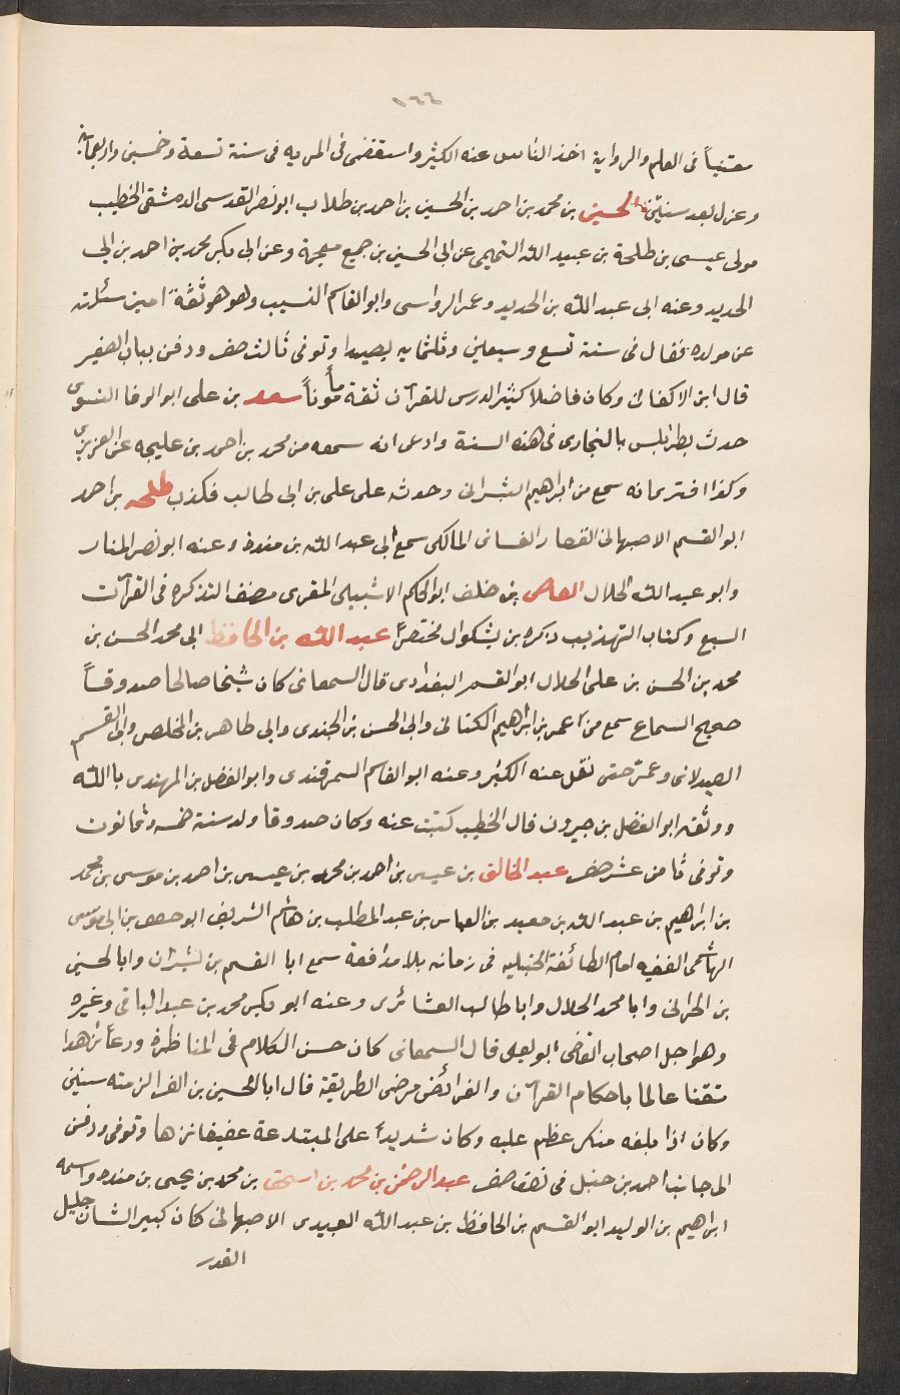 ١٦٤
معتنياً فى العلم والرواية اخذ الناس عنه الكثير واستقضى فى المريه فى سنة تسعة وخمسين واربعمائة
وعزل بعد سنيتن الحسين بن محمد بن احمد بن الحسين بن احمد بن طلاب ابو نصر القدسى الدمشقى الخطيب
مولى عيسى بن طلحة بن عبيد الله التيمى عن ابى الحسين بن جميع معجمة وعن ابى بكر محمد بن احمد بن ابى
الحديد وعنه ابى عبد الله بن الحديد وعمر الرواسى وابو القاسم النسيب وهو هو ثقة امين سئلته
عن مولده فقال فى سنة تسع وسبعين وثلثمايه بصيدا وتوفى ثالث صفر ودفن بباب الصغير
قال ابن الاكفانى وكان فاضلا كثير الدرس للقرآن ثقة مأموناً سعد بن على ابو الوفا النسوى
حدث بطرابلس بالبخارى فى هذه السنة وادعى انه سمعه من محمد بن احمد بن عليجه عن الفربرى
وكذا افتر بانه سمع من ابراهيم الشرابى وحدث على على بن ابى طالب فكذب طلحه بن احمد
ابو القسم الاصبهانى القصار الغسانى المالكى سمع ابى عبد الله بن منده وعنه ابو نصر المنار
وابو عبد الله الخلال العاص بن خلف ابو الحكم الاشبيلى المقرى مصنف التذكره فى القرآت
السبع وكتاب التهذيب ذكره بن بشكوال مختصراً عبد الله بن الحافظ ابى محمد الحسن بن
محمد بن الحسن بن على الخلال ابو القسم البغدادى قال السمعانى كان شيخا صالحا صدوقاً
صحيح السماع سمع من عمر بن ابراهيم الكتانى وابى الحسن بن الجندى وابى طاهر بن المخلص وابى القسم
الصيدلانى وعمر حتى نقل عنه الكثير وعنه ابو القاسم السمرقندى وابو الفضل بن المهتدى بالله
ووثقه ابو الفضل بن جيرون قال الخطيب كتبت عنه وكان صدوقا ولد سنة خمسه وثمانون
وتوفى ثامن عشر صفر عبد الخالق بن عيسى بن احمد بن محمد بن عيسى بن احمد بن موسى بن محمد
بن ابراهيم بن عبد الله بن معبد بن العباس بن عبد المطلب بن هاشم الشريف ابو جعفر بن ابى موسى
الهاشمى الفقيه امام الطائفة الحنبليه فى زمانه بلا مدافعة سمع ابا القسم بن بشران وابا لحسين
بن الحرانى وابا محمد الخلال وابا طالب العشائرى وعنه ابو بكر محمد بن عبد الباقى وغيره
وهو اجل اصحاب القاضى ابو يعلى قال السمعانى كان حسن الكلام فى المناظرة ورعاً زاهدا
متقنا عالما باحكام القرآن والفرائض مرضى الطريقة قال ابا الحسين بن الفرا لزمته سنين
وكان اذا بلغه منكر عظم عليه وكان شديداً على المبتدعة عفيفا نزها وتوفى ودفن
الى جانب احمد بن حنبل فى نصف صفر عبد الرحمن بن محمد بن اسحق بن محمد بن يحيى بن منده واسمه
ابراهيم بن الوليد ابو القسم بن الحافظ بن عبد الله العبيدى الاصبهانى كان كبير الشان جليل
القدر